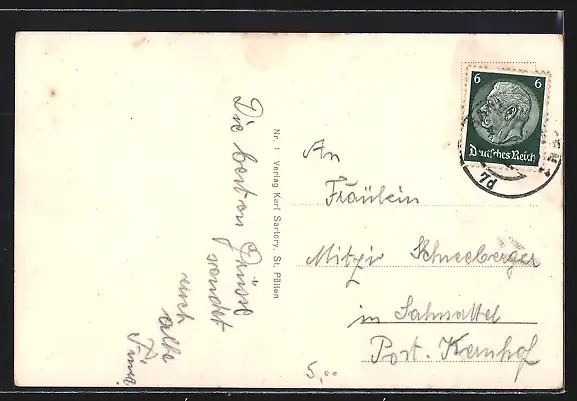 Die besten Grüsse
sendet
euch
alle
Nr. 1 Verlag Karl Sartory, St. Pölten
6 6
Deutsches Reich
An
Fräulein
Mitzi Schneeberger
in
Post.
5,00